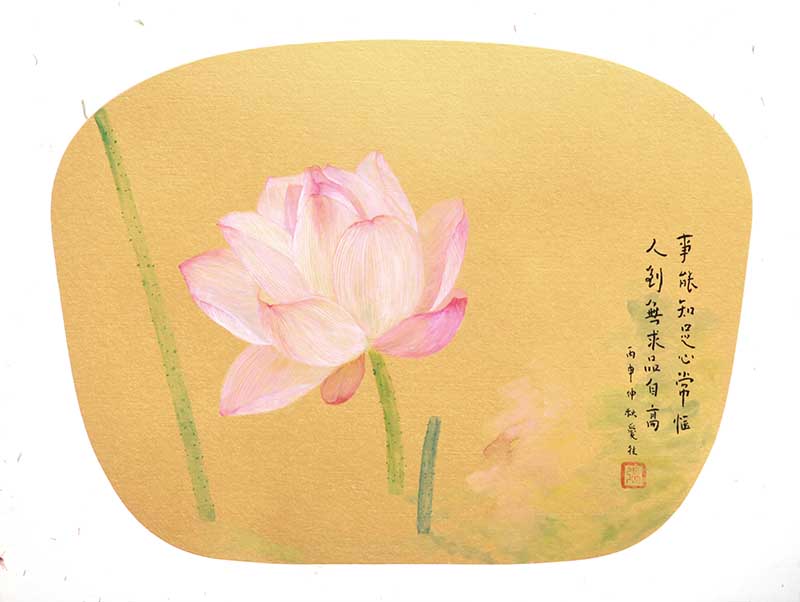 事能知足心常惬
人到無求品自高
丙申仲秋愛社